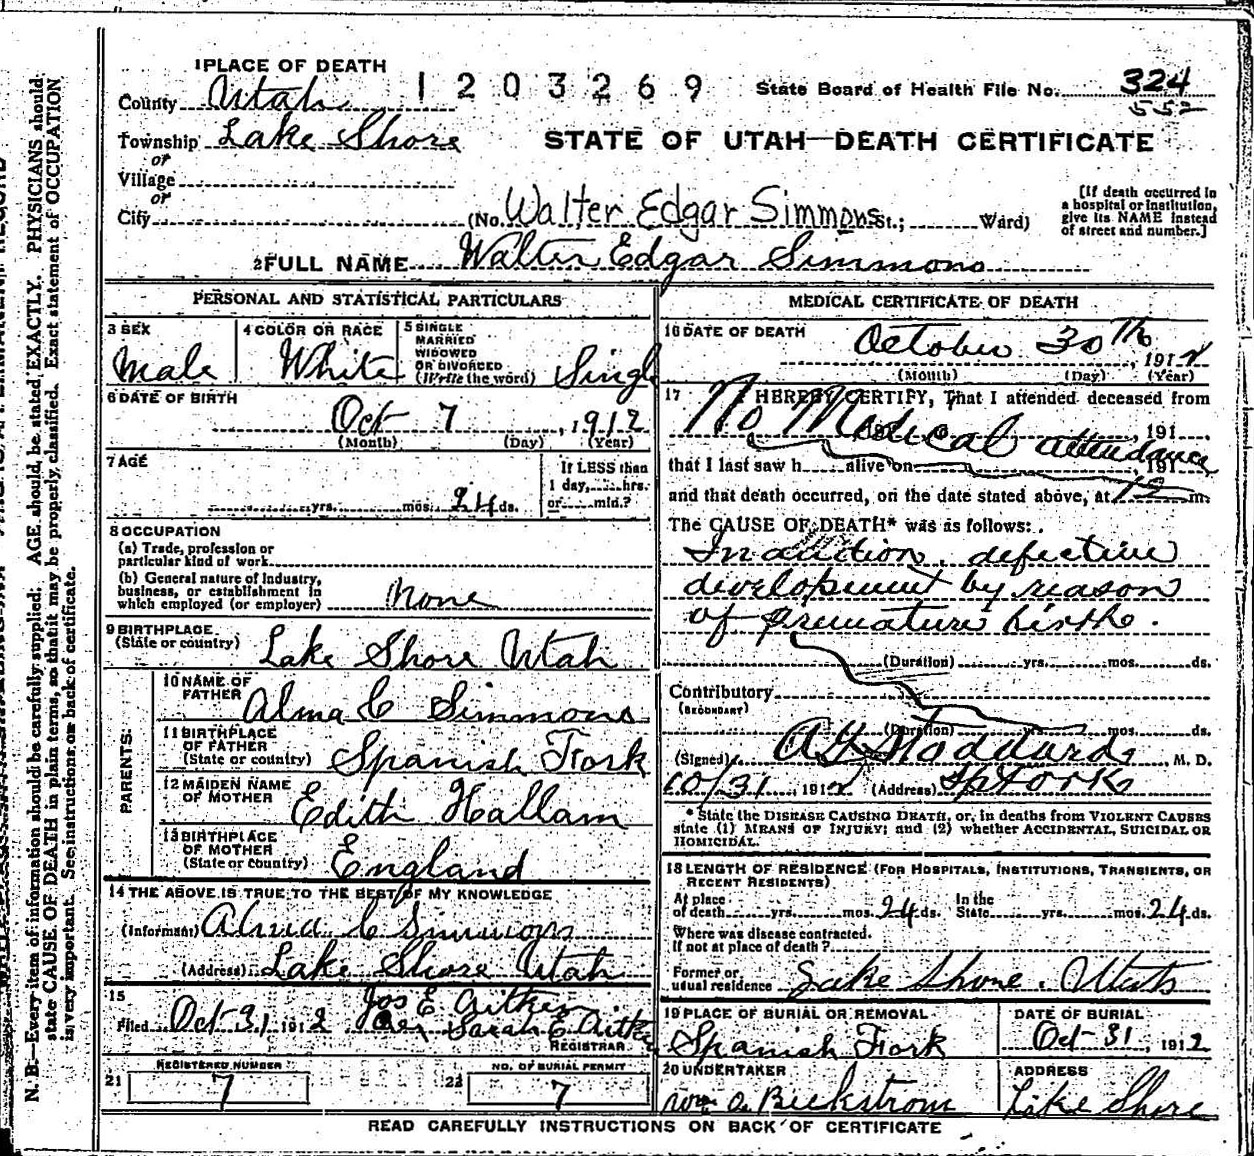 1 PLACE OF DEATH
1203269
State Board of Health File No. 324
552
County Utah
Township Lake Shore
STATE OF UTAH—DEATH CERTIFICATE
or
Village
or
City (No. Walter Edgar Simmons St.; Ward)
[If death occurred in
a hospital or institution,
give its NAME instead
of street and number.]
2 FULL NAME Walter Edgar Simmons
PERSONAL AND STATISTICAL PARTICULARS
3 SEX
Male
4 COLOR OR RACE
White
5 SINGLE
MARRIED
WIDOWED
OR DIVORCED
(Write the word) Singl
6 DATE OF BIRTH
Oct 7, 1912
(Month) (Day) (Year)
7 AGE
yrs. mos. 24 ds.
If LESS than
1 day, hrs.
or min.?
8 OCCUPATION
(a) Trade, profession or
particular kind of work
(b) General nature of Industry,
business, or establishment in
which employed (or employer) None
9 BIRTHPLACE
(State or country) Lake Shore Utah
PARENTS.
10 NAME OF
FATHER Alma C Simmons
11 BIRTHPLACE
OF FATHER
(State or country) Spanish Fork
12 MAIDEN NAME
OF MOTHER Edith Hallam
13 BIRTHPLACE
OF MOTHER
(State or country) England
14 THE ABOVE IS TRUE TO THE BEST OF MY KNOWLEDGE
(Informant) Alma C Simmons
(Address) Lake Shore Utah
15
Filed Oct 31 1912 Jos E Aitken
Per Sarah E Aitke
REGISTRAR
21 REGISTERED NUMBER
7
22 NO. OF BURIAL PERMIT
7
MEDICAL CERTIFICATE OF DEATH
16 DATE OF DEATH
October 30th, 1912
(Month) (Day) (Year)
17 I HEREBY CERTIFY, That I attended deceased from
No Medical attendance
191
that I last saw h alive on , 191
and that death occurred, on the date stated above, at 12 m.
The CAUSE OF DEATH* was as follows:
Inanition, defective
development by reason
of premature birth.
(Duration) yrs. mos. ds.
Contributory
(SECONDARY)
(Duration) mos. ds.
(Signed) Stoddard, M. D.
10/31, 1912 (Address) Sp Fork
* State the DISEASE CAUSING DEATH, or, in deaths from VIOLENT CAUSES
state (1) MEANS OF INJURY; and (2) whether ACCIDENTAL, SUICIDAL OR
HOMICIDAL.
18 LENGTH OF RESIDENCE (FOR HOSPITALS, INSTITUTIONS, TRANSIENTS, OR
RECENT RESIDENTS)
At place
of death yrs. mos. 24 ds.
In the
State yrs. mos. 24 ds.
Where was disease contracted.
If not at place of death?
Former or
usual residence Lake Shore, Utah
19 PLACE OF BURIAL OR REMOVAL
Spanish Fork
DATE OF BURIAL
Oct 31, 1912
20 UNDERTAKER
Wm O. Beckstrom
ADDRESS
Lake Shore
READ CAREFULLY INSTRUCTIONS ON BACK OF CERTIFICATE
N. B.—Every item of information should be carefully supplied. AGE should be stated EXACTLY. PHYSICIANS should
state CAUSE OF DEATH in plain terms, so that it may be properly classified. Exact statement of OCCUPATION
is very important. See instructions on back of certificate.